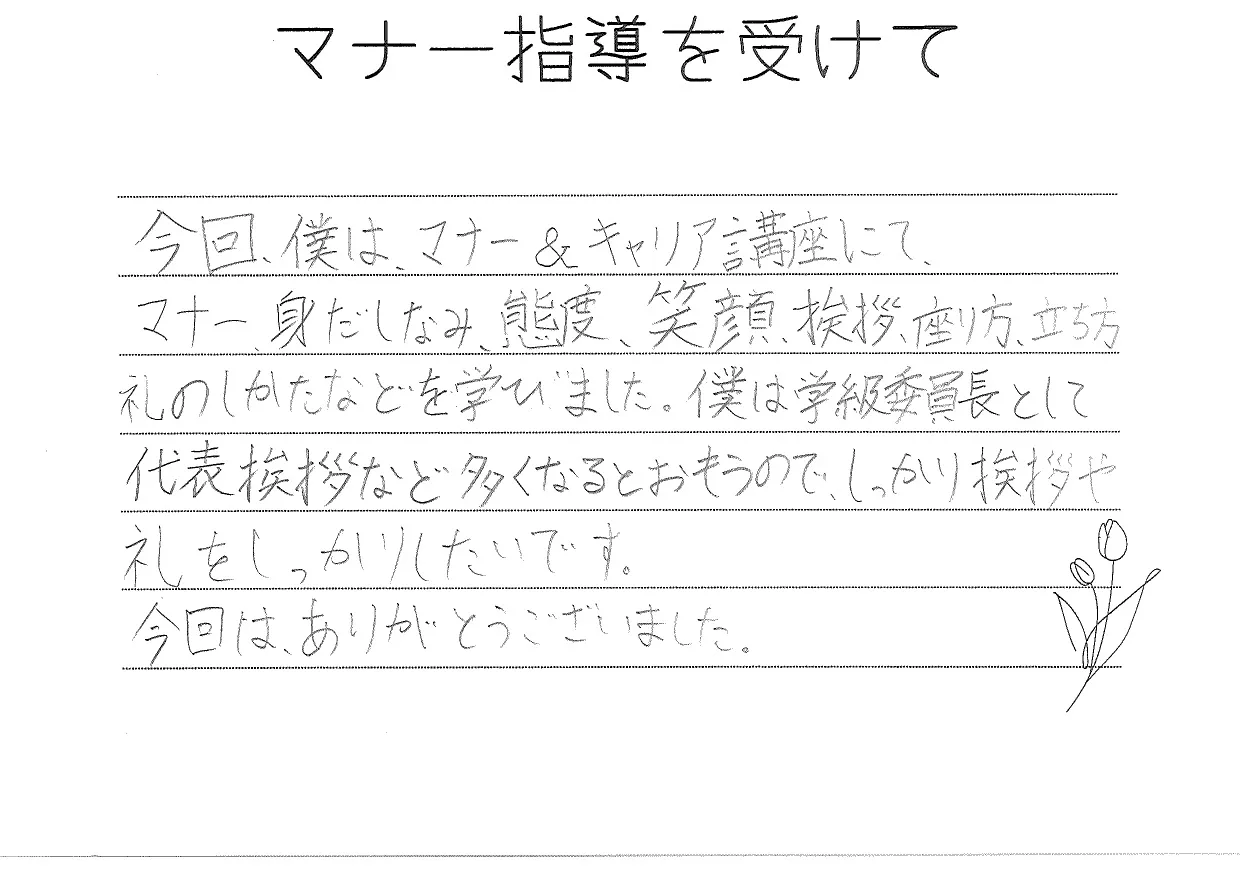 マナー指導を受けて
今回、僕は、マナー&キャリア講座にて、
マナー、身だしなみ、態度、笑顔、挨拶、座り方、立ち方
礼のしかたなどを学びました。僕は学級委員長として
代表挨拶など多くなるとおもうので、しっかり挨拶や
礼をしっかりしたいです。
今回は、ありがとうございました。